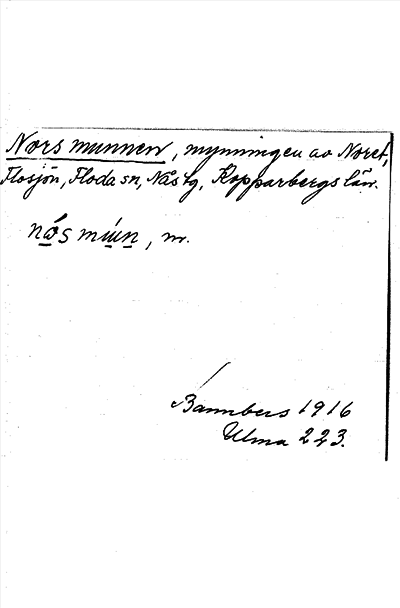 Norsmunnen, mynningen av Noret,
Flosjön, Floda sn, Nås tg, Kopparbergs län.
nǿs mún, m.
Bannbers 1916
Ulma 223.